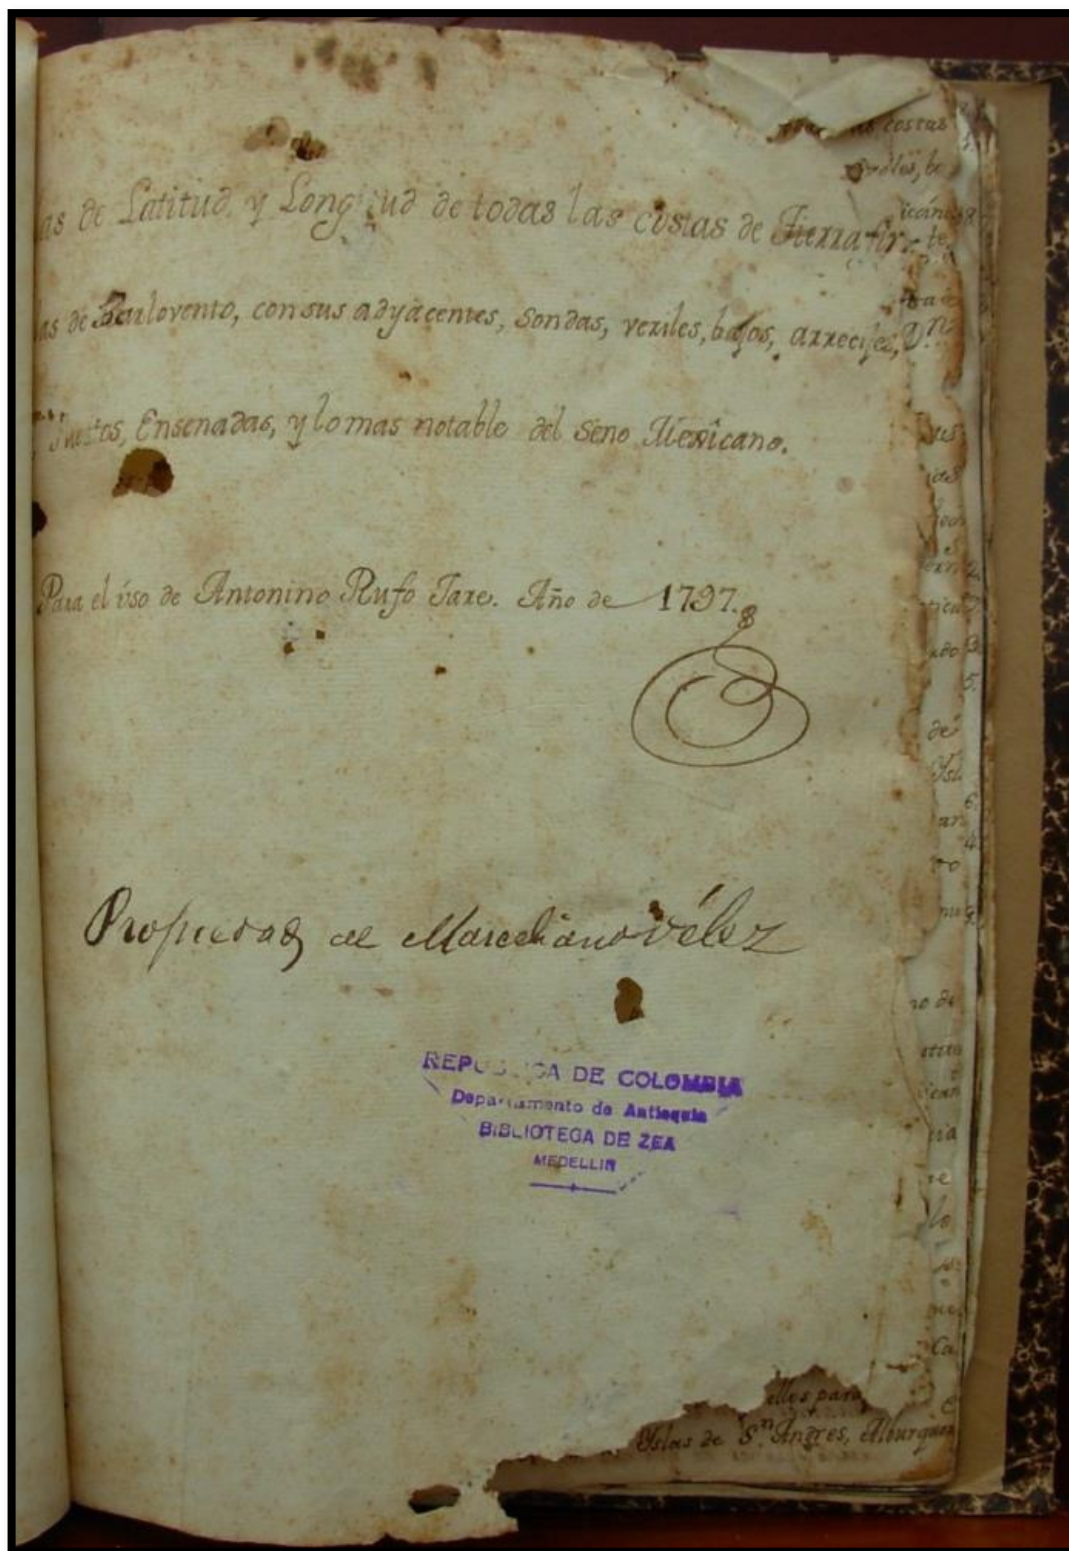 as de Latitud, y Longitud de todas las costas de Tierra fir
as de Barlovento, con sus adyacentes, Sondas, veriles, bajos, arrecifes,
Puertos, Ensenadas, y lo mas notable del Seno Mexicano.
Para el úso de Antonino Rufo Taxe. Año de 1797.
Propiedad de Marceliano Vélez
REPUBLICA DE COLOMBIA
Departamento de Antioquia
BIBLIOTECA DE ZEA
MEDELLIN
costas
de
Ysl
no de
lo
ellos para
Yslas de Sn Andres, Alburquer